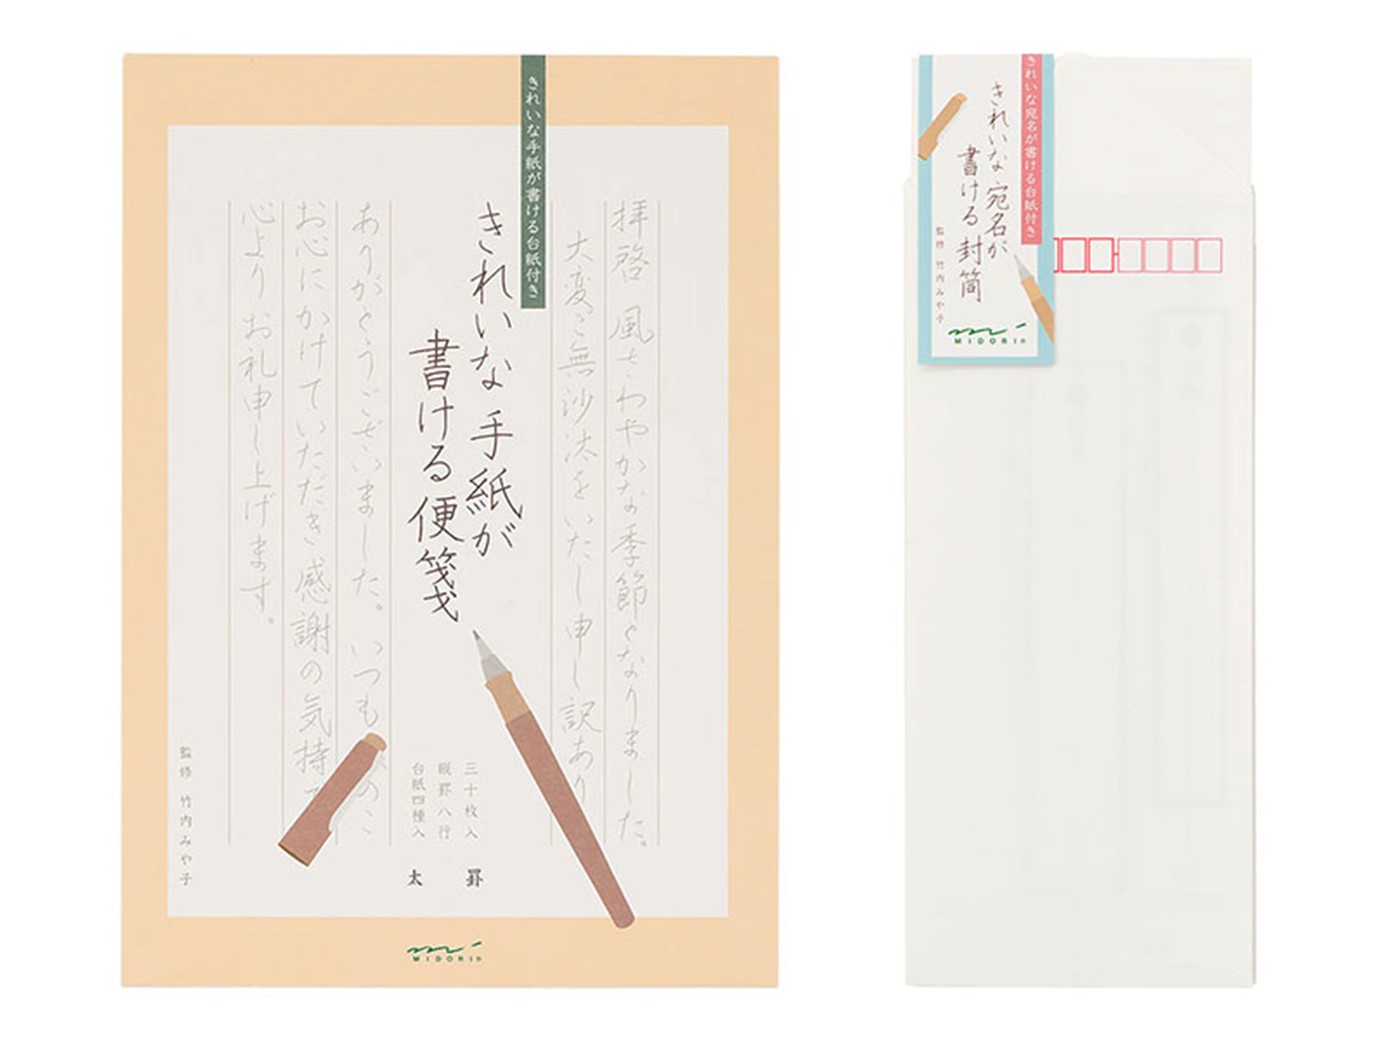 きれいな手紙が書ける台紙付き
拝啓 風さわやかな季節となりました。
大変ご無沙汰をいたし申し訳あり
きれいな手紙が
書ける便箋
ありがとうございました。いつも
お心にかけていただき感謝の気持
心よりお礼申し上げます。
三十枚入
縦罫八行
台紙四種入
太 罫
監修 竹内みや子
MIDORI
きれいな宛名が書ける台紙付き
きれいな宛名が
書ける封筒
監修 竹内みや子
MIDORI